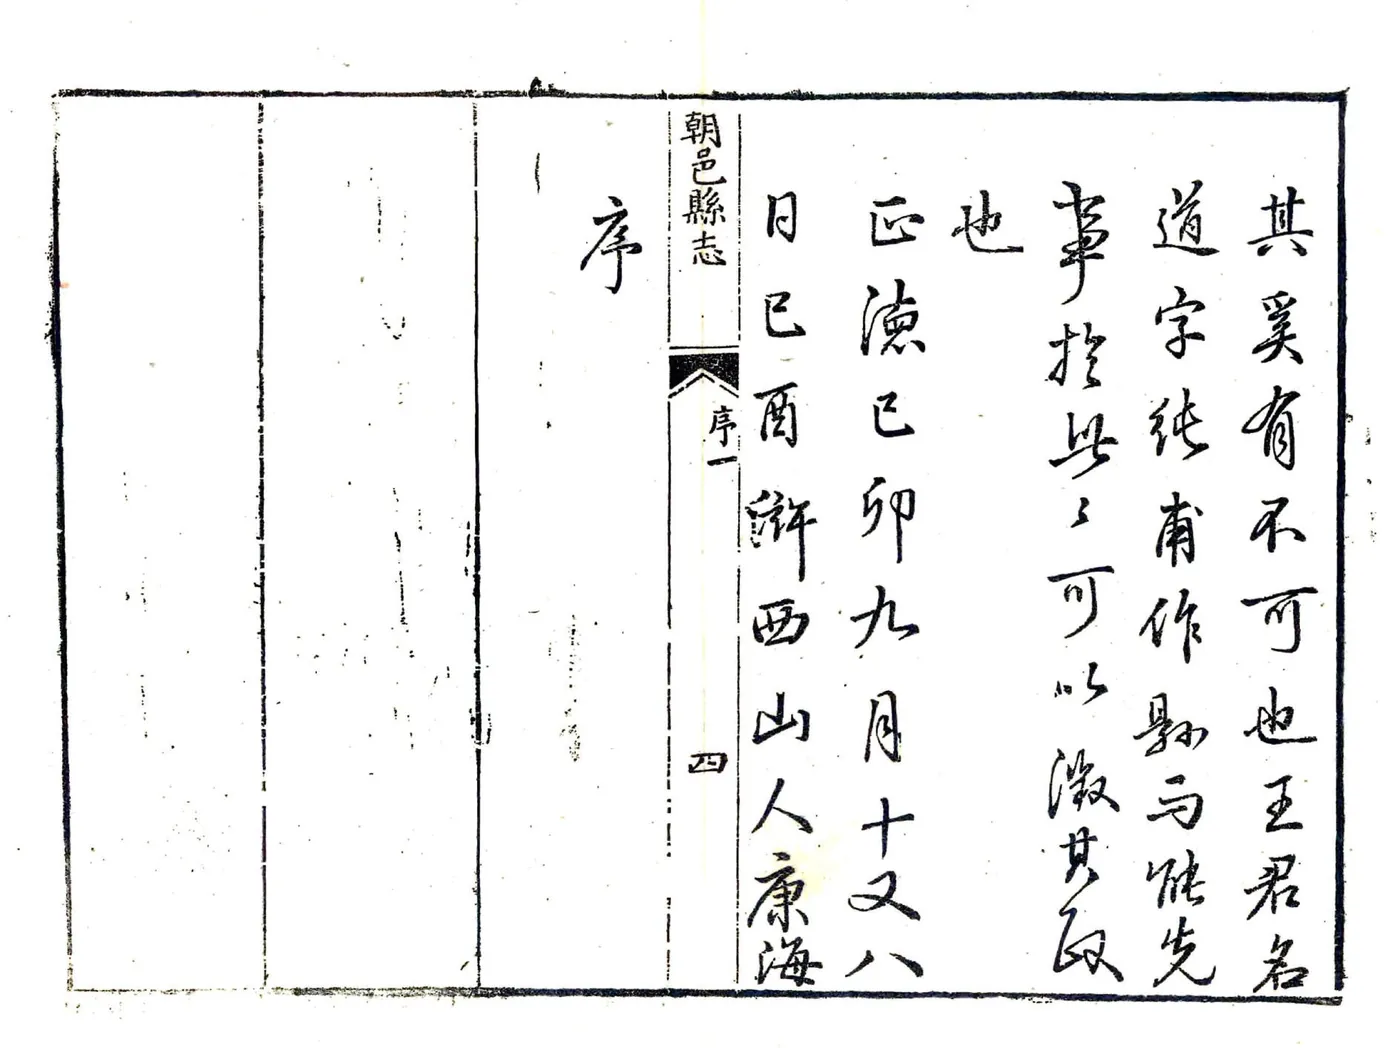 其奚有不可也王君名
道字純甫作縣而能先
事於此〻可以徵其政
也
正德己卯九月十又八
日己酉滸西山人康海
朝邑縣志
序一
四
序